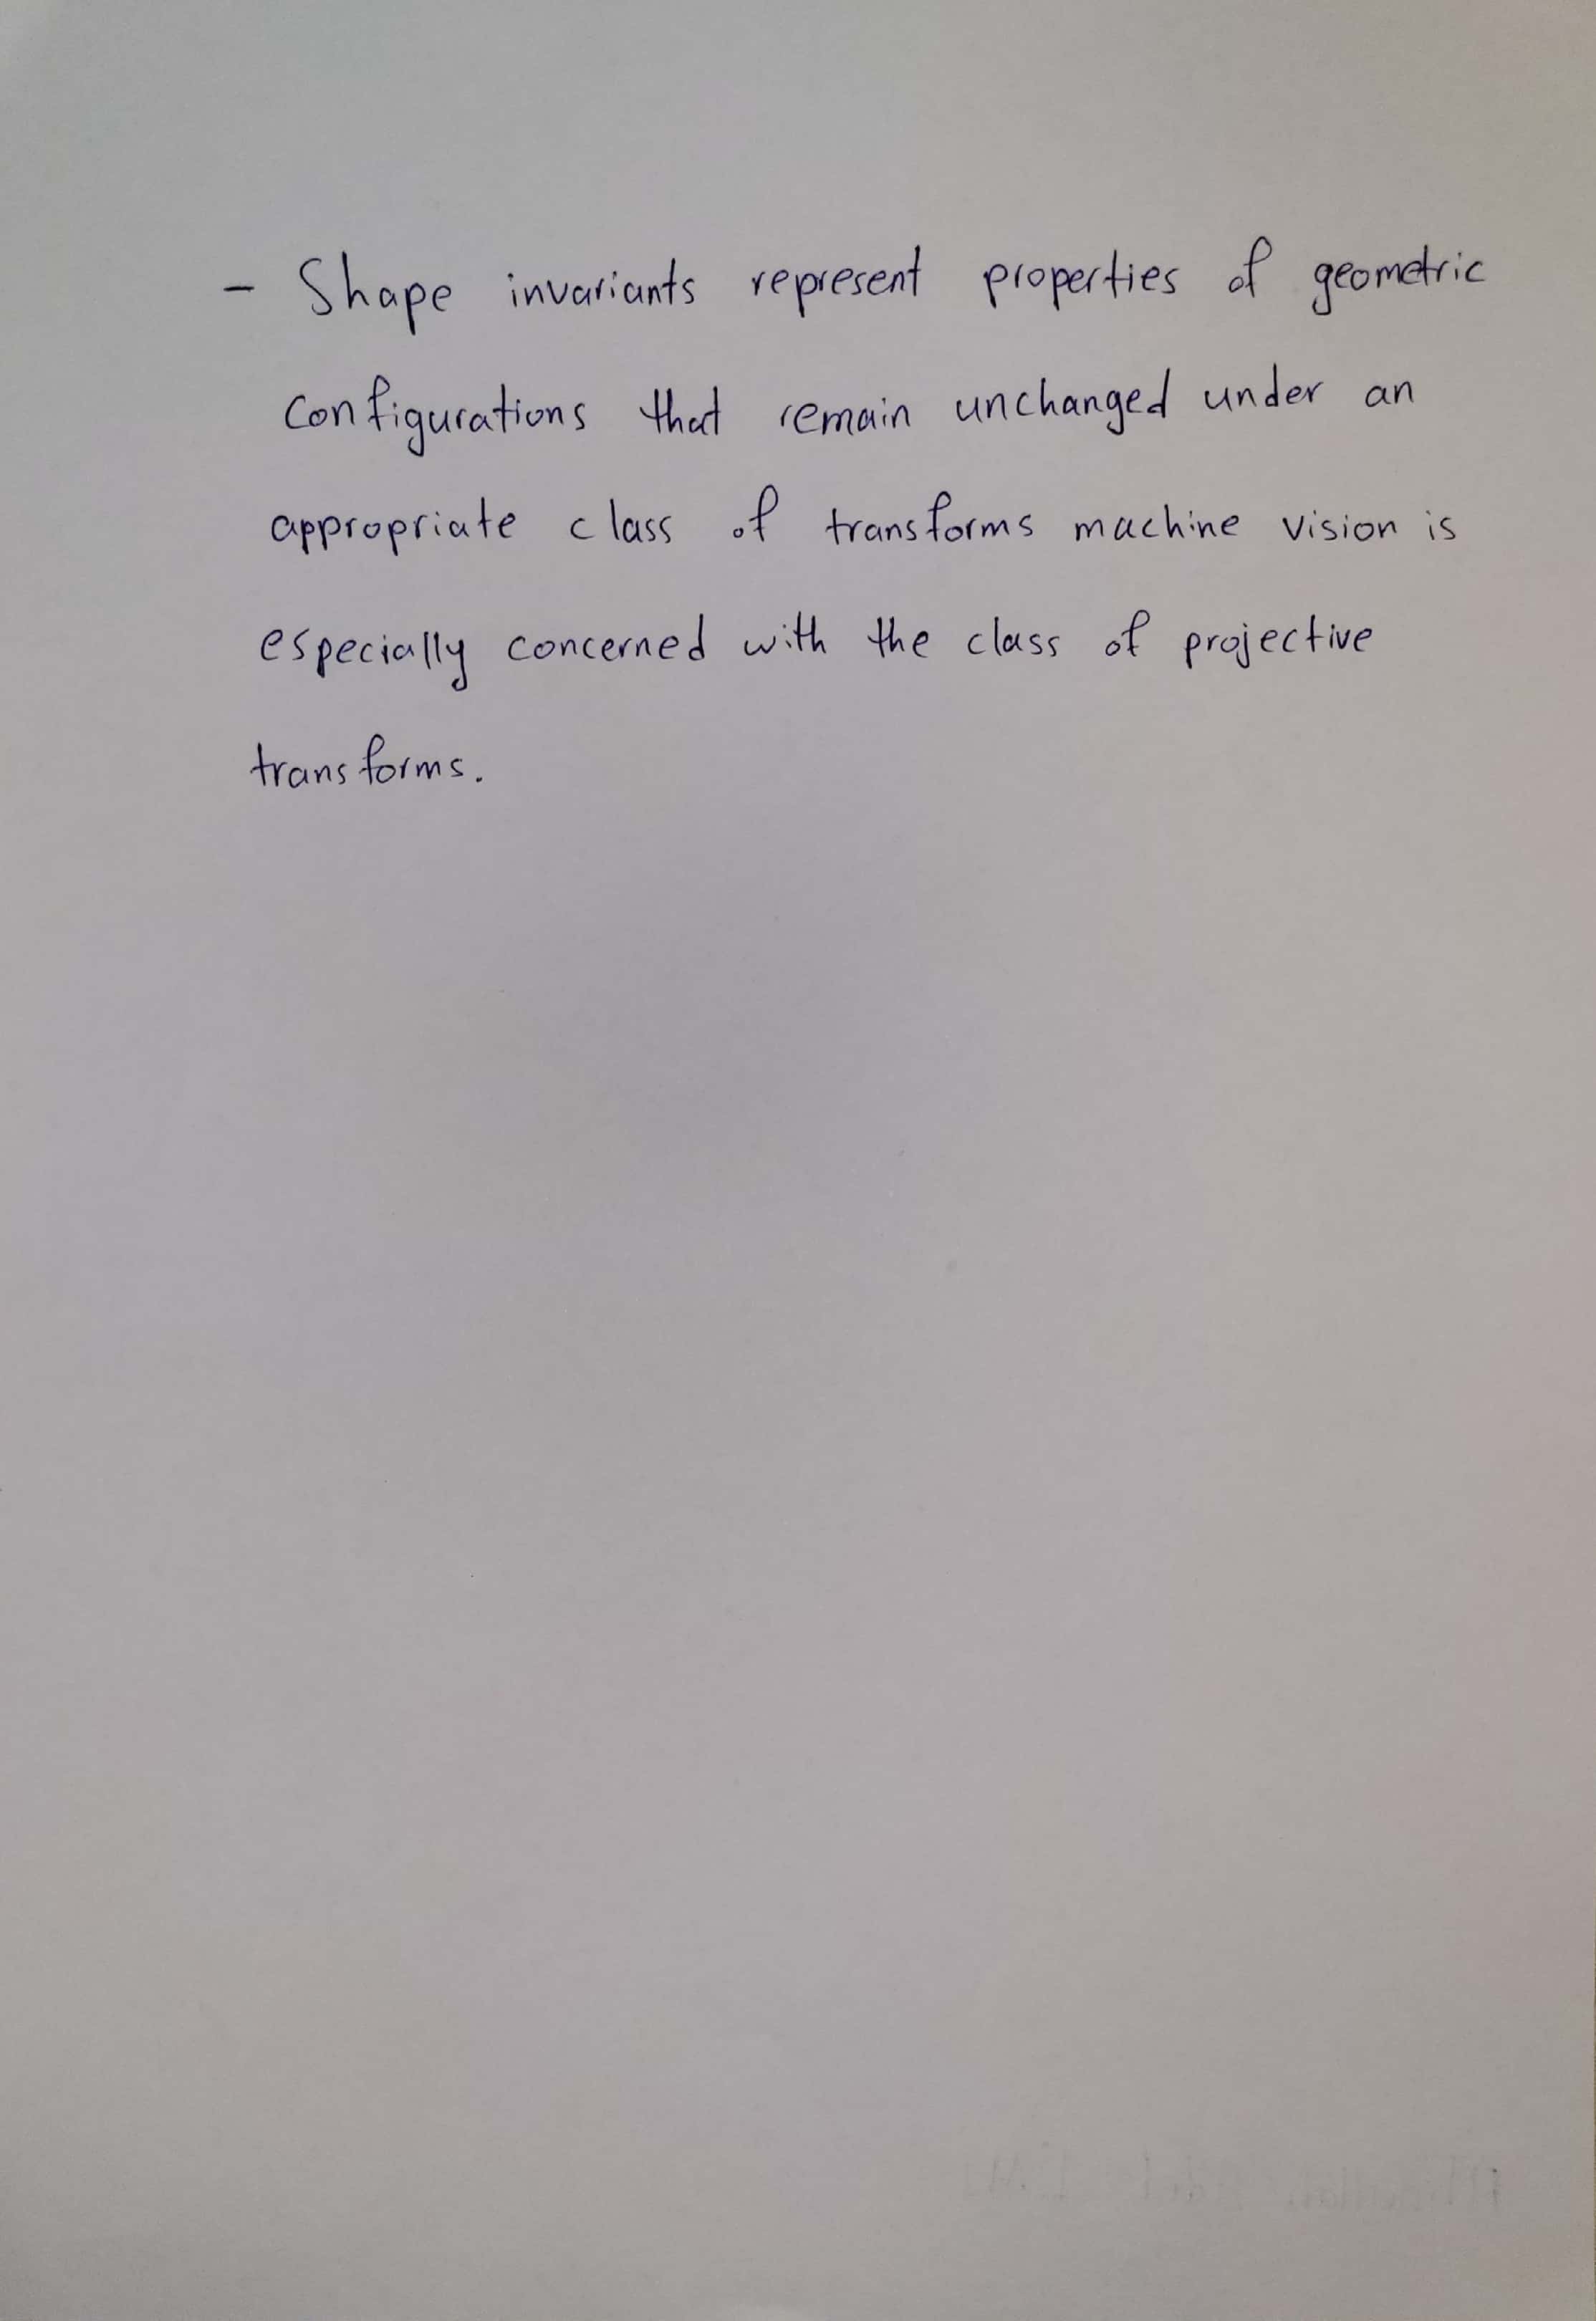 - Shape invariants represent properties of geometric
configurations that remain unchanged under an
appropriate class of transforms machine vision is
especially concerned with the class of projective
transforms.